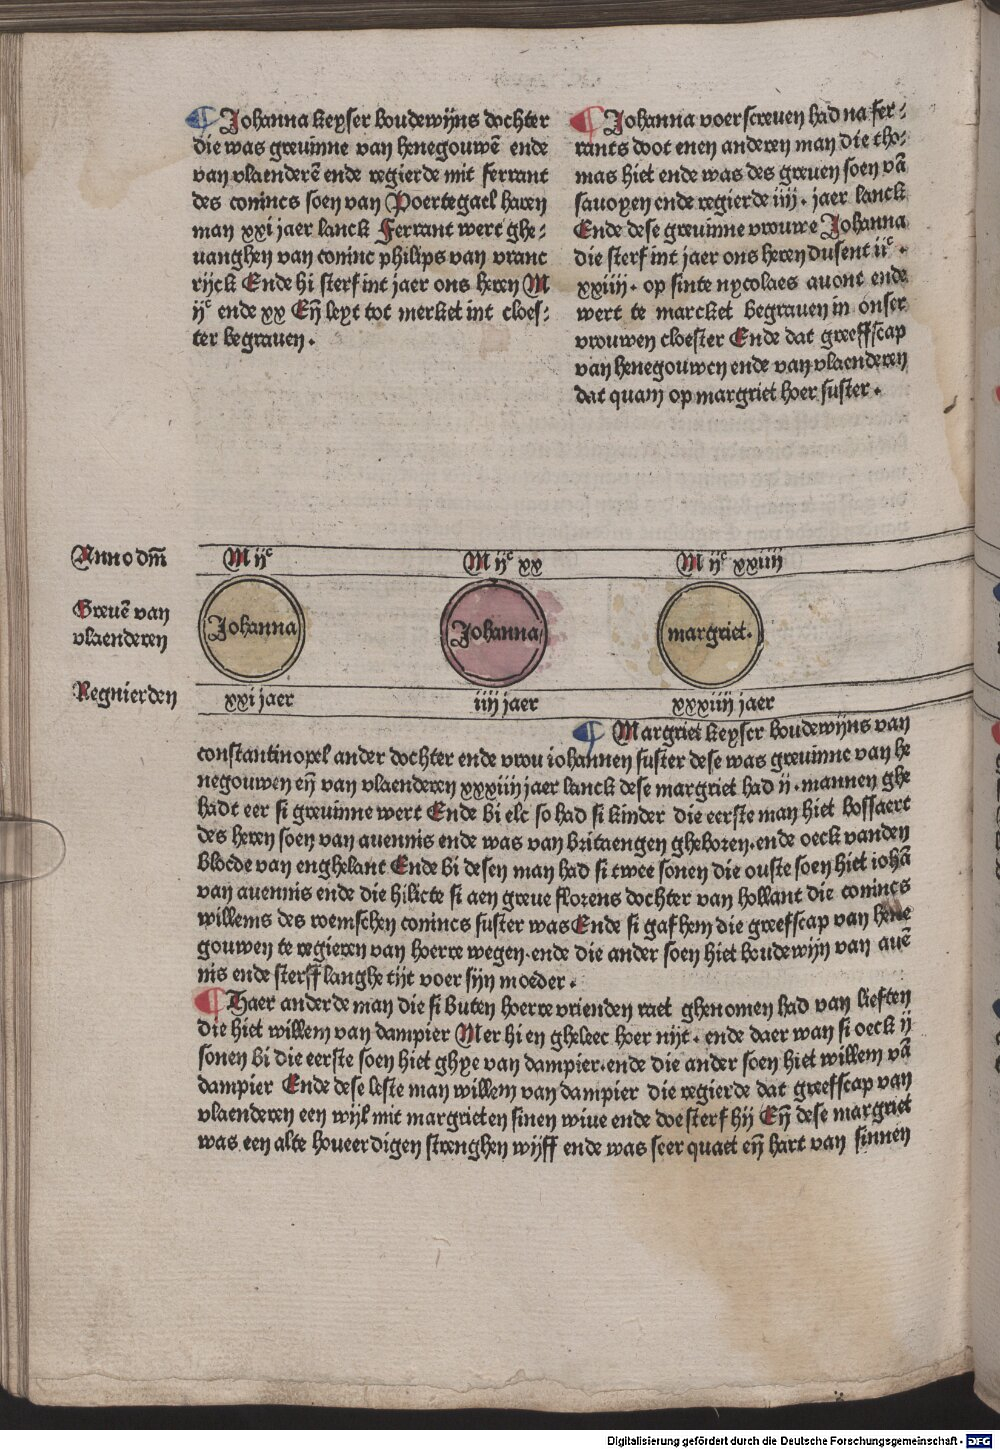 ¶ Johanna keyser boudewijns dochter
die was greuinne van henegouwē ende
van vlaenderē ende regierde mit ferrant
des conincs soen van Poertegael haren
man xxi jaer lanck Ferrant wert ghe⸗
uanghen van coninc philips van vranc
rijck Ende hi sterf int jaer ons heren M
ijᶜ ende xx Eñ leyt tot merket int cloes⸗
ter begrauen.
¶ Johanna voerscreuen had na fer⸗
rants doot enen anderen man die tho⸗
mas hiet ende was des greuen soen vā
sauoyen ende regierde iiij. jaer lanck
Ende dese greuinne vrouwe Johanna
die sterf int jaer ons heren dusent iiᶜ.
xxiiij. op sinte nycolaes auont ende
wert te marcket begrauen in onser
vrouwen cloester Ende dat greeffscap
van henegouwen ende van vlaenderen
dat quam op margriet hoer suster.
Anno dm̄
M ijᶜ
M ijᶜ xx
M ijᶜ xxiiij
Greuē van
vlaenderen
Johanna
Johanna
margriet.
Regnierden
xxi jaer
iiij jaer
xxxiiij jaer
¶ Margriet keyser boudewijns van
constantinopel ander dochter ende vrou iohannen suster dese was greuinne van he
negouwen eñ van vlaenderen xxxiiij jaer lanck dese margriet had ij. mannen ghe
hadt eer si greuinne wert Ende bi elc so had si kinder die eerste man hiet bossaert
des heren soen van auennis ende was van britaengen gheboren. ende oeck vanden
bloede van enghelant Ende bi desen man had si twee sonen die ouste soen hiet iohā
van auennis ende die hilicte si aen greue florens dochter van hollant die conincs
willems des roemschen conincs suster was Ende si gaf hem die greefscap van hene
gouwen te regieren van hoerre wegen. ende die ander soen hiet boudewijn van auē
nis ende sterff langhe tijt voer sijn moeder.
¶ Haer anderde man die si buten hoerre vrienden raet ghenomen had van lieften
die hiet willem van dampier Mer hi en gheleec hoer nijt. ende daer wan si oeck ij
sonen bi die eerste soen hiet ghye van dampier. ende die ander soen hiet willem vā
dampier Ende dese leste man willem van dampier die regierde dat greefscap van
vlaenderen een wijl mit margrieten sinen wiue ende doe sterf hij Eñ dese margriet
was een alte houeerdigen strenghen wijff ende was seer quaet eñ hart van sinnen
Digitalisierung gefördert durch die Deutsche Forschungsgemeinschaft - DFG